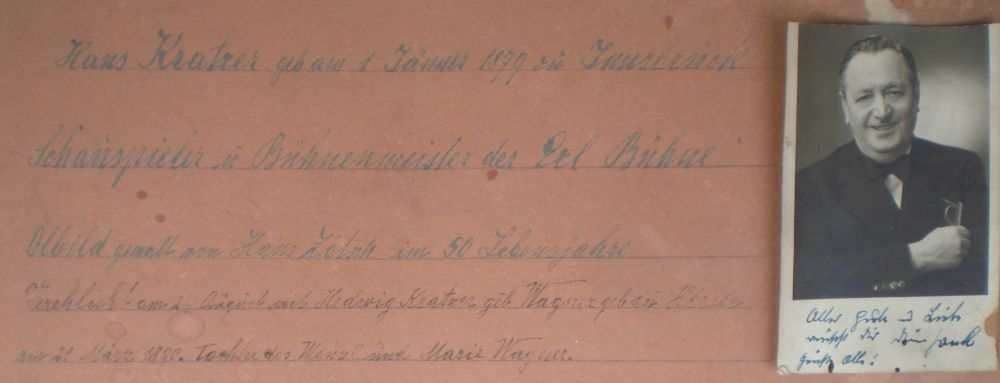 Hans Kratzer geb am 1 Jänner 1879 zu Innsbruck
Schauspieler u Bühnenmeister der Exl Bühne
Ölbild gemalt von Hans im 50 Lebensjahre
Verehlicht am August mit Hedwig Kratzer geb Wagner geb zu
am 21 März 1890. Tochter des Wenzl und Marie Wagner.
Alles Gute u Liebe
wünscht Dir Dein